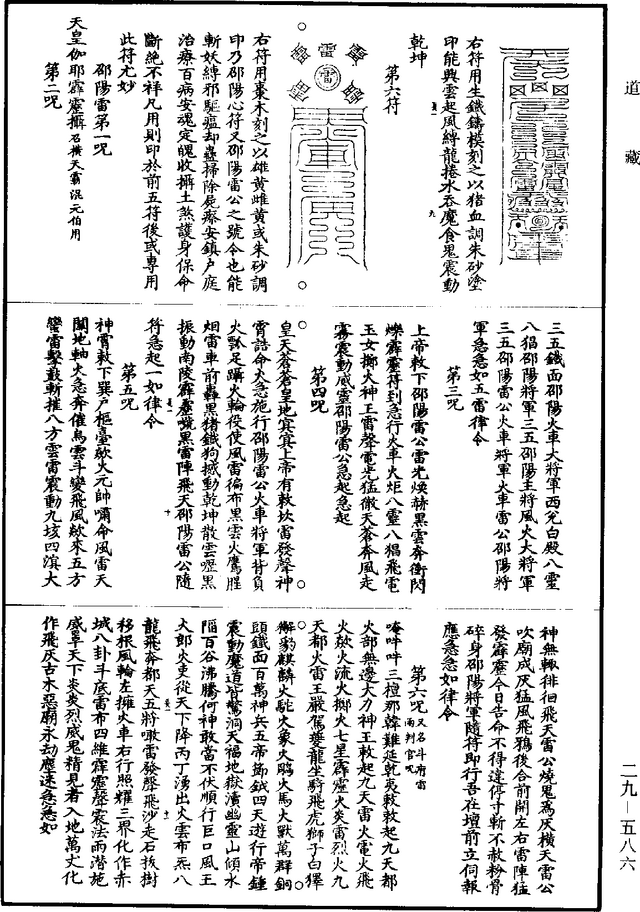 道藏
右符用生鐵鑄模刻之以猪血調朱砂塗
印能興雲起風縛龍捲水吞魔食鬼震動
乾坤
第六符
雷
右符用棗木刻之以雄黃雌黃或朱砂調
印乃邵陽心符又邵陽雷公之號令也能
斬妖縛邪驅瘟却蠱掃除屍瘵安鎮戶庭
治療百病安魂定魄收攝土煞護身保命
斷絕不祥凡用則印於前五符後或專用
此符尤妙
邵陽雷第一呪
天皇伽耶霹靂攝石橫天霸混元伯用
第二呪
三五鐵面邵陽火車大將軍西兊白殿八靈
八猖邵陽將軍三五邵陽主將風火大將軍
三五邵陽雷公火車將軍火車雷公邵陽將
軍急急如五雷律令
第三呪
上帝敕下邵陽雷公雷光煥赫黑雲奔衝閃
爍霹靂得到急行火車火炬八靈八猖飛電
玉女擲火神王雷聲電光猛徹天蒼奔風走
霧震動威靈邵陽雷公急起急起
第四呪
皇天蒼蒼皇地㝠㝠上帝有敕坎雷發聲神
霄誥命火急施行邵陽雷公火車將軍背負
火瓢足躡火輪役使風雷徧布黑雲火鷹腥
烟雷車前轟黑猪鐵狗撼動乾坤散雲瀝黑
振動南陵霹靂噴黑雷陣飛天邵陽雷公隨
符急起一如律令
第五呪
神霄敕下巽戶樞臺歘火元帥嘯命風雷天
關地軸火急奔催烏雲斗變飛風歘來五方
蠻雷擊鼓斬摧八方雲雷震動九垓四溟大
神無輒徘徊飛天雷公燒鬼爲灰橫天雷公
吹廟成灰猛風飛鴉後合前開左右雷陣猛
發霹靂今日告命不得違停寸斬不赦粉骨
碎身邵陽將軍隨符即行吾在壇前立伺報
應急急如律令
第六呪又名斗府雷雨判官呪
唵吽吽三檀那韓難延乾夷敕敕起九天都
火部無邊大力神王敕起九天雷火電火飛
火歘火流火擲火七星霹靂火炎雷烈火九
天都火雷王嚴駕夔龍坐騎飛虎獅子白獐
獬豹麒麟火駝火象火鴟火馬火獸萬群銅
頭鐵面百萬神兵五帝節鉞四天遊行帝鍾
震動魔道皆驚洞天福地嶽瀆幽靈山傾水
陷百谷沸騰何神敢當不伏順行巨口風王
大郎火吏從天下降丙丁湧出火雲布炁八
龍飛奔都天五將噉雷發聲飛沙走石拔樹
移根風輪左擁火車右行照耀三界化作赤
城八卦斗底雷布四維霹靂聲震法雨潛施
威亘天下炎炎烈威鬼精見者入地萬丈化
作飛灰古木惡廟永刧塵迷急急急如
二九—五八六